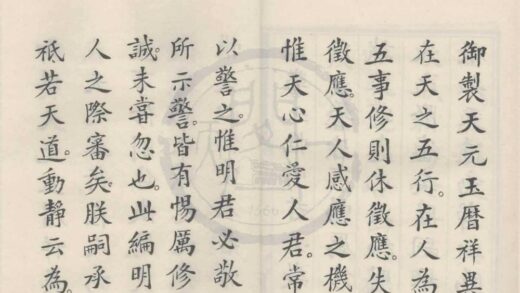 御製天元玉曆祥異
在天之五行。在人為
五事修則休徵應。失
徵應。天人感應之機
惟天心仁愛人君。常
以警之。惟明君必敬
所示警。皆有惕厲修
誠。未嘗忽也。此編明
人之際審矣。朕嗣承
祇若天道。動靜云為。